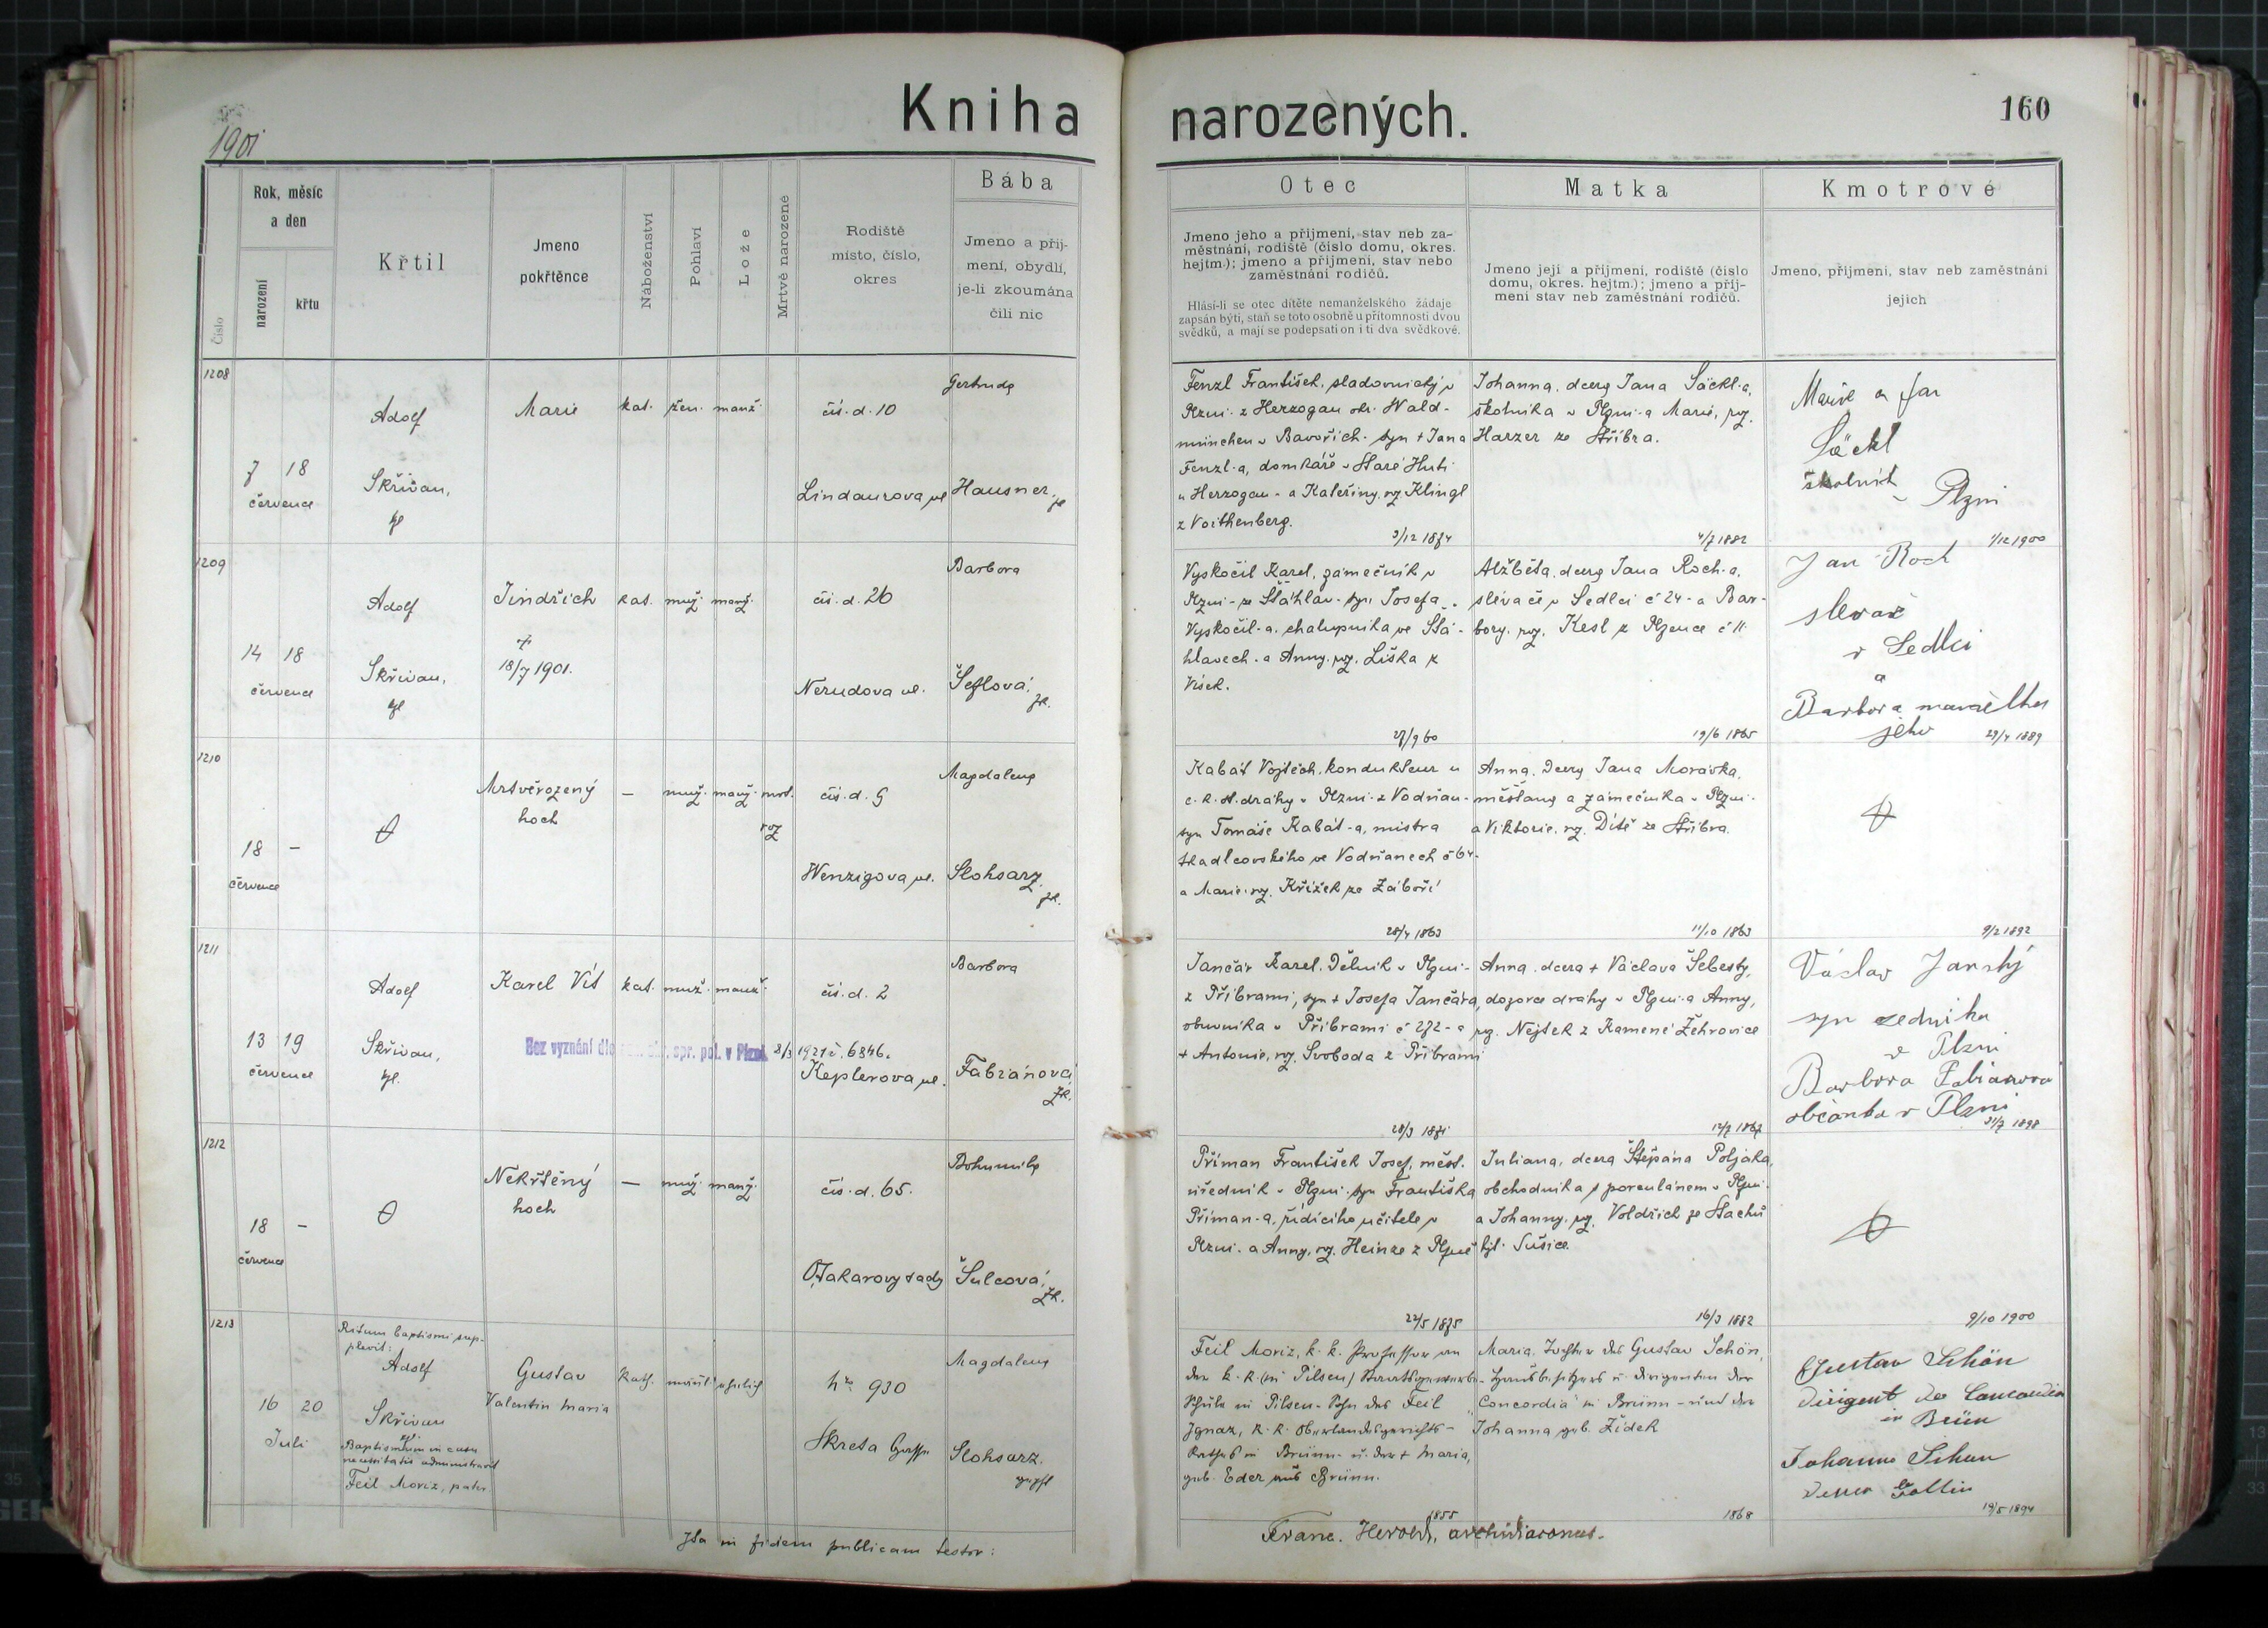 Kniha narozených.
160
1901
Číslo
Rok, měsíc
a den
narození
křtu
Křtil
Jmeno
pokřtěnce
Náboženství
Pohlaví
Lože
Mrtvě narozené
Rodiště
místo, číslo,
okres
Bába
Jmeno a příj-
mení, obydlí,
je-li zkoumána
čili nic
Otec
Jmeno jeho a příjmení, stav neb za-
městnání, rodiště (číslo domu, okres.
hejtm.); jmeno a příjmení, stav nebo
zaměstnání rodičů.
Hlásí-li se otec dítěte nemanželského žádaje
zapsán býti, staň se toto osobně u přítomnosti dvou
svědků, a mají se podepsati on i ti dva svědkové.
Matka
Jmeno její a příjmení, rodiště (číslo
domu, okres. hejtm.); jmeno a příj-
mení stav neb zaměstnání rodičů.
Kmotrové
Jmeno, příjmení, stav neb zaměstnání
jejich
1208
7 18
července
Adolf
Skřivan,
Marie
kat. žen. manž.
čís. d. 10
Lindaurova ul
Gertruda
Hausner
Fenzl František, sladovnický v
Plzni z Herzogau okr. Wald-
münchen v Bavořích. syn + Jana
Fenzl-a, domkáře v Staré Huti
u Herzogau - a Kateřiny, roz. Klingl
z Voithenberg.
3/12 1874
Johanna, dcera Jana Säckl-a,
školníka v Plzni a Marie, roz.
Harzer ze Stříbra.
4/7 1882
Marie a Jan
Säckl
školník
v Plzni
1/12 1900
1209
14 18
července
Adolf
Skřivan,
Jindřich
+
18/7 1901.
kat. muž. manž.
čís. d. 26
Nerudova ul.
Barbora
Šeflová,
zk.
Vyskočil Karel, zámečník v
Plzni - ze Šťáhlav - syn Josefa
Vyskočil-a, chalupníka ve Šťá-
hlavech - a Anny, roz. Liška z
Vísek.
27/9 60
Alžběta, dcera Jana Roch-a,
slévače v Sedlci č 24 - a Bar-
bory, roz. Kesl z Plzence č 11
19/6 1865
Jan Roch
slevač
v Sedlci
a
Barbora manželka
jeho
29/4 1889
1210
18 -
července
Mrtvěrozený
hoch
— muž. manž. mrt.
roz
čís. d. 5
Wenzigova ul.
Magdalena
Slohsarz,
zk.
Kabát Vojtěch, kondukteur u
c. k. st. dráhy v Plzni z Vodňan -
syn Tomáše Kabát-a, mistra
tkadlcovského ve Vodňanech č 64 -
a Marie, roz. Křížek ze Záboří
28/4 1863
Anna, dcera Jana Morávka,
měšťana a zámečníka v Plzni -
a Viktorie, roz. Dítě ze Stříbra.
11/10 1863
9/2 1892
1211
13 19
července
Adolf
Skřivan,
Karel Vít
kat. muž. manž.
Bez vyznání dle spr. pol. v Plzni 8/3 1921 č. 6846.
čís. d. 2
Keplerova ul.
Barbora
Fabianová,
zk.
Jančár Karel, dělník v Plzni -
z Příbrami, syn + Josefa Jančára,
obuvníka v Příbrami č 272 - a
+ Antonie, roz. Svoboda z Příbrami
28/3 1871
Anna, dcera + Václava Šebesty,
dozorce dráhy v Plzni a Anny,
roz. Nejtek z Kamené Žehrovice
12/7 1867
Václav Janský
syn zedníka
v Plzni
Barbora Fabianova
občanka v Plzni
31/7 1898
1212
18 -
července
Nekřtěný
hoch
— muž. manž.
čís. d. 65.
Otakarovy sady
Bohumila
Šulcová,
zk.
Příman František Josef, měst.
úředník v Plzni. syn Františka
Příman-a, řídícího učitele v
Plzni. a Anny, roz. Heinze z Plzně
22/5 1875
Juliana, dcera Štěpána Poljaka,
obchodníka s porculánem v Plzni
a Johanny, roz. Voldřich ze Stachů
hjt. Sušice.
16/3 1882
9/10 1900
1213
16 20
Juli
Ritum baptismi sup-
plevit:
Adolf
Skřivan
Baptismum in casu
necessitatis administravit
Feil Moriz, pater
Gustav
Valentin Maria
Kath. männl. ehelich
No 930
Skreta Gasse
Magdalena
Slohsarz.
geprft
Feil Moriz, k. k. Professor an
der k. k. (in Pilsen) Staatsgewerbe-
schule in Pilsen - Sohn des Feil
Ignaz, k. k. Oberlandesgerichts-
rathes in Brünn - u. der + Maria,
geb. Eder aus Brünn.
1855
Maria, Tochter des Gustav Schön,
Hausbesitzers u. Dirigenten der
„Concordia" in Brünn - und der
Johanna geb. Židek
1868
Gustav Schön
Dirigent der Concordia
in Brünn
Johanna Schön
dessen Gattin
19/5 1894
Ita in fidem publicam testor:
Franc. Herold, archidiaconus.